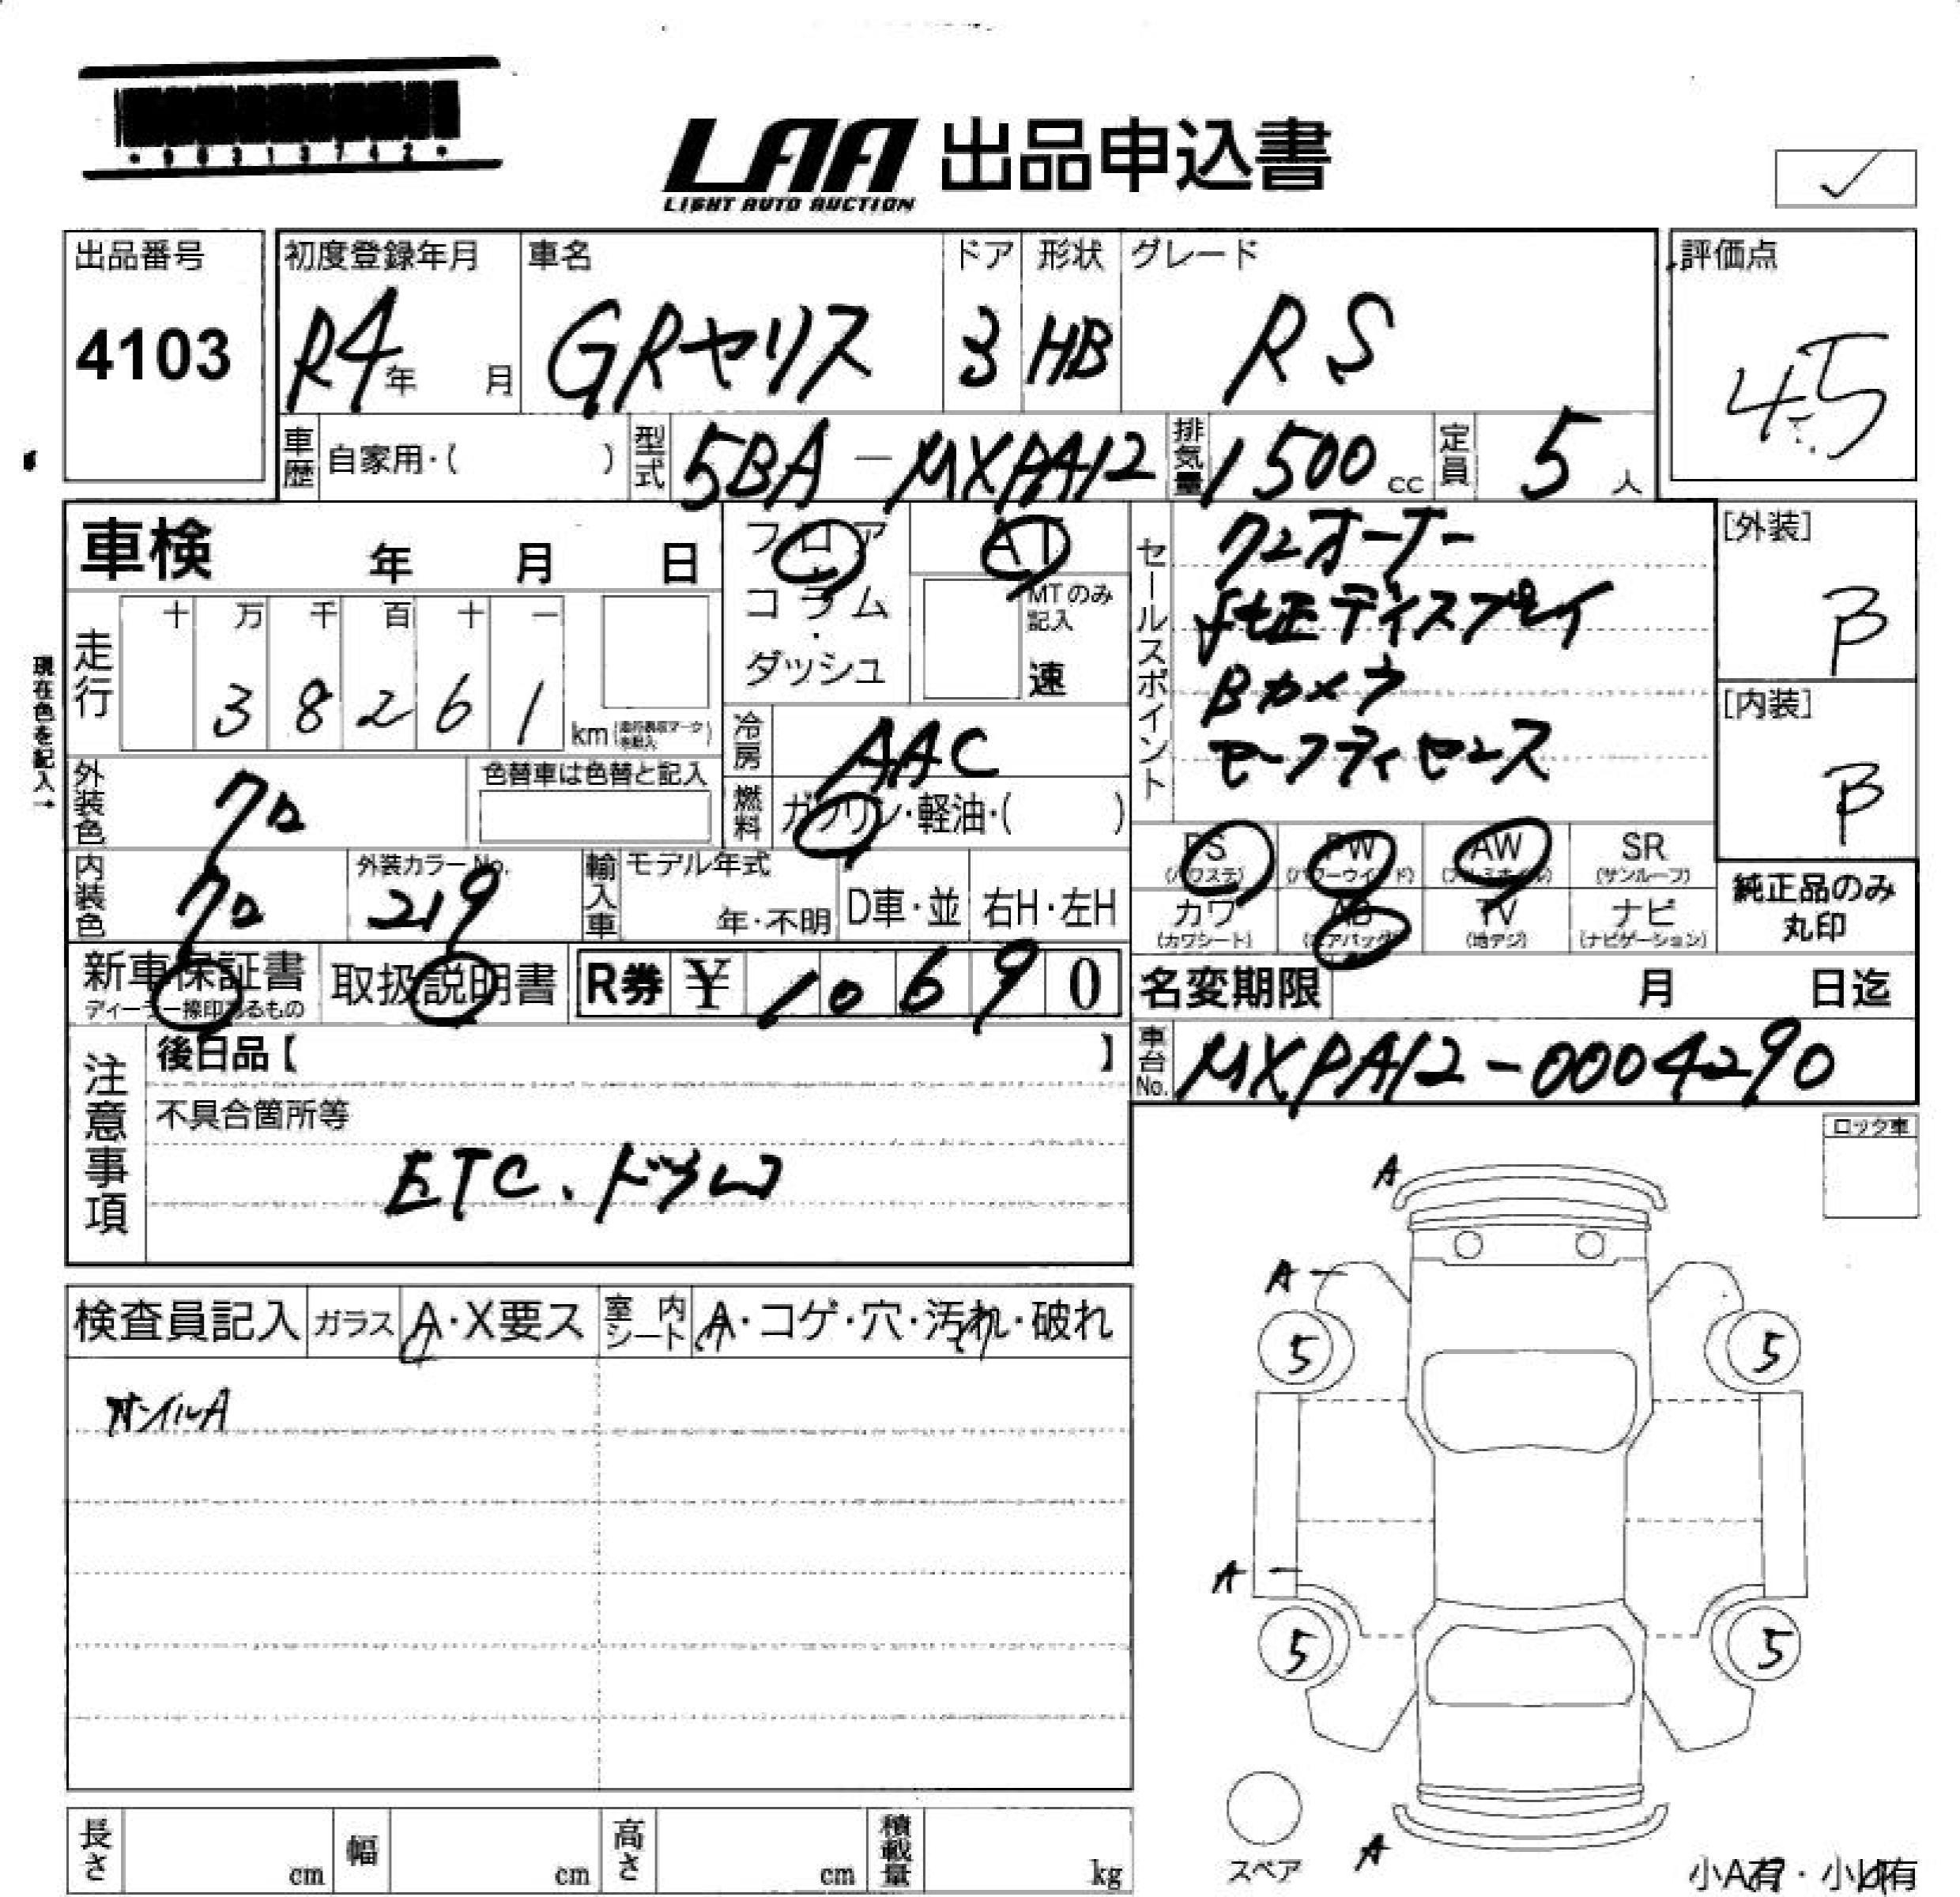 *00313742*
LAA 出品申込書
LIGHT AUTO AUCTION
✓
出品番号 初度登録年月 車名 ドア 形状 グレード 評価点
4103 R4年 月 GRヤリス 3 HB RS 4.5
車歴 自家用・( ) 型式 5BA-MXPA12 排気量 1500cc 定員 5人
車検 年 月 日
フロア・コラム・ダッシュ
AT
MTのみ記入
速
セールスポイント
ワンオーナー
st正ディスプレイ
Bカメラ
セーフティセンス
[外装]
B
[内装]
B
現在色を記入→
走行 十 万 千 百 十 一
3 8 2 6 1 km
冷房 AAC
燃料 ガソリン・軽油・( )
外装色 クロ 色替車は色替と記入
内装色 クロ 外装カラーNo. 219
輸入車 モデル年式 年・不明 D車・並 右H・左H
PS (パワステ) PW (パワーウインド) AW (アルミホイル) SR (サンルーフ)
カワ (カワシート) AB (エアバッグ) TV (地デジ) ナビ (ナビゲーション)
純正品のみ
丸印
新車保証書 取扱説明書 R券 ¥ 10690
ディーラー捺印あるもの
名変期限 月 日迄
車台No. MXPA12-0004290
注意事項
後日品【 】
不具合箇所等
ETC、ドラレコ
ロック車
検査員記入 ガラス A・X要ス 室内シート A・コゲ・穴・汚れ・破れ
ホイルA
A
A
5 5
A
5 5
スペア
A
小A有・小U有
長さ cm 幅 cm 高さ cm 積載量 kg